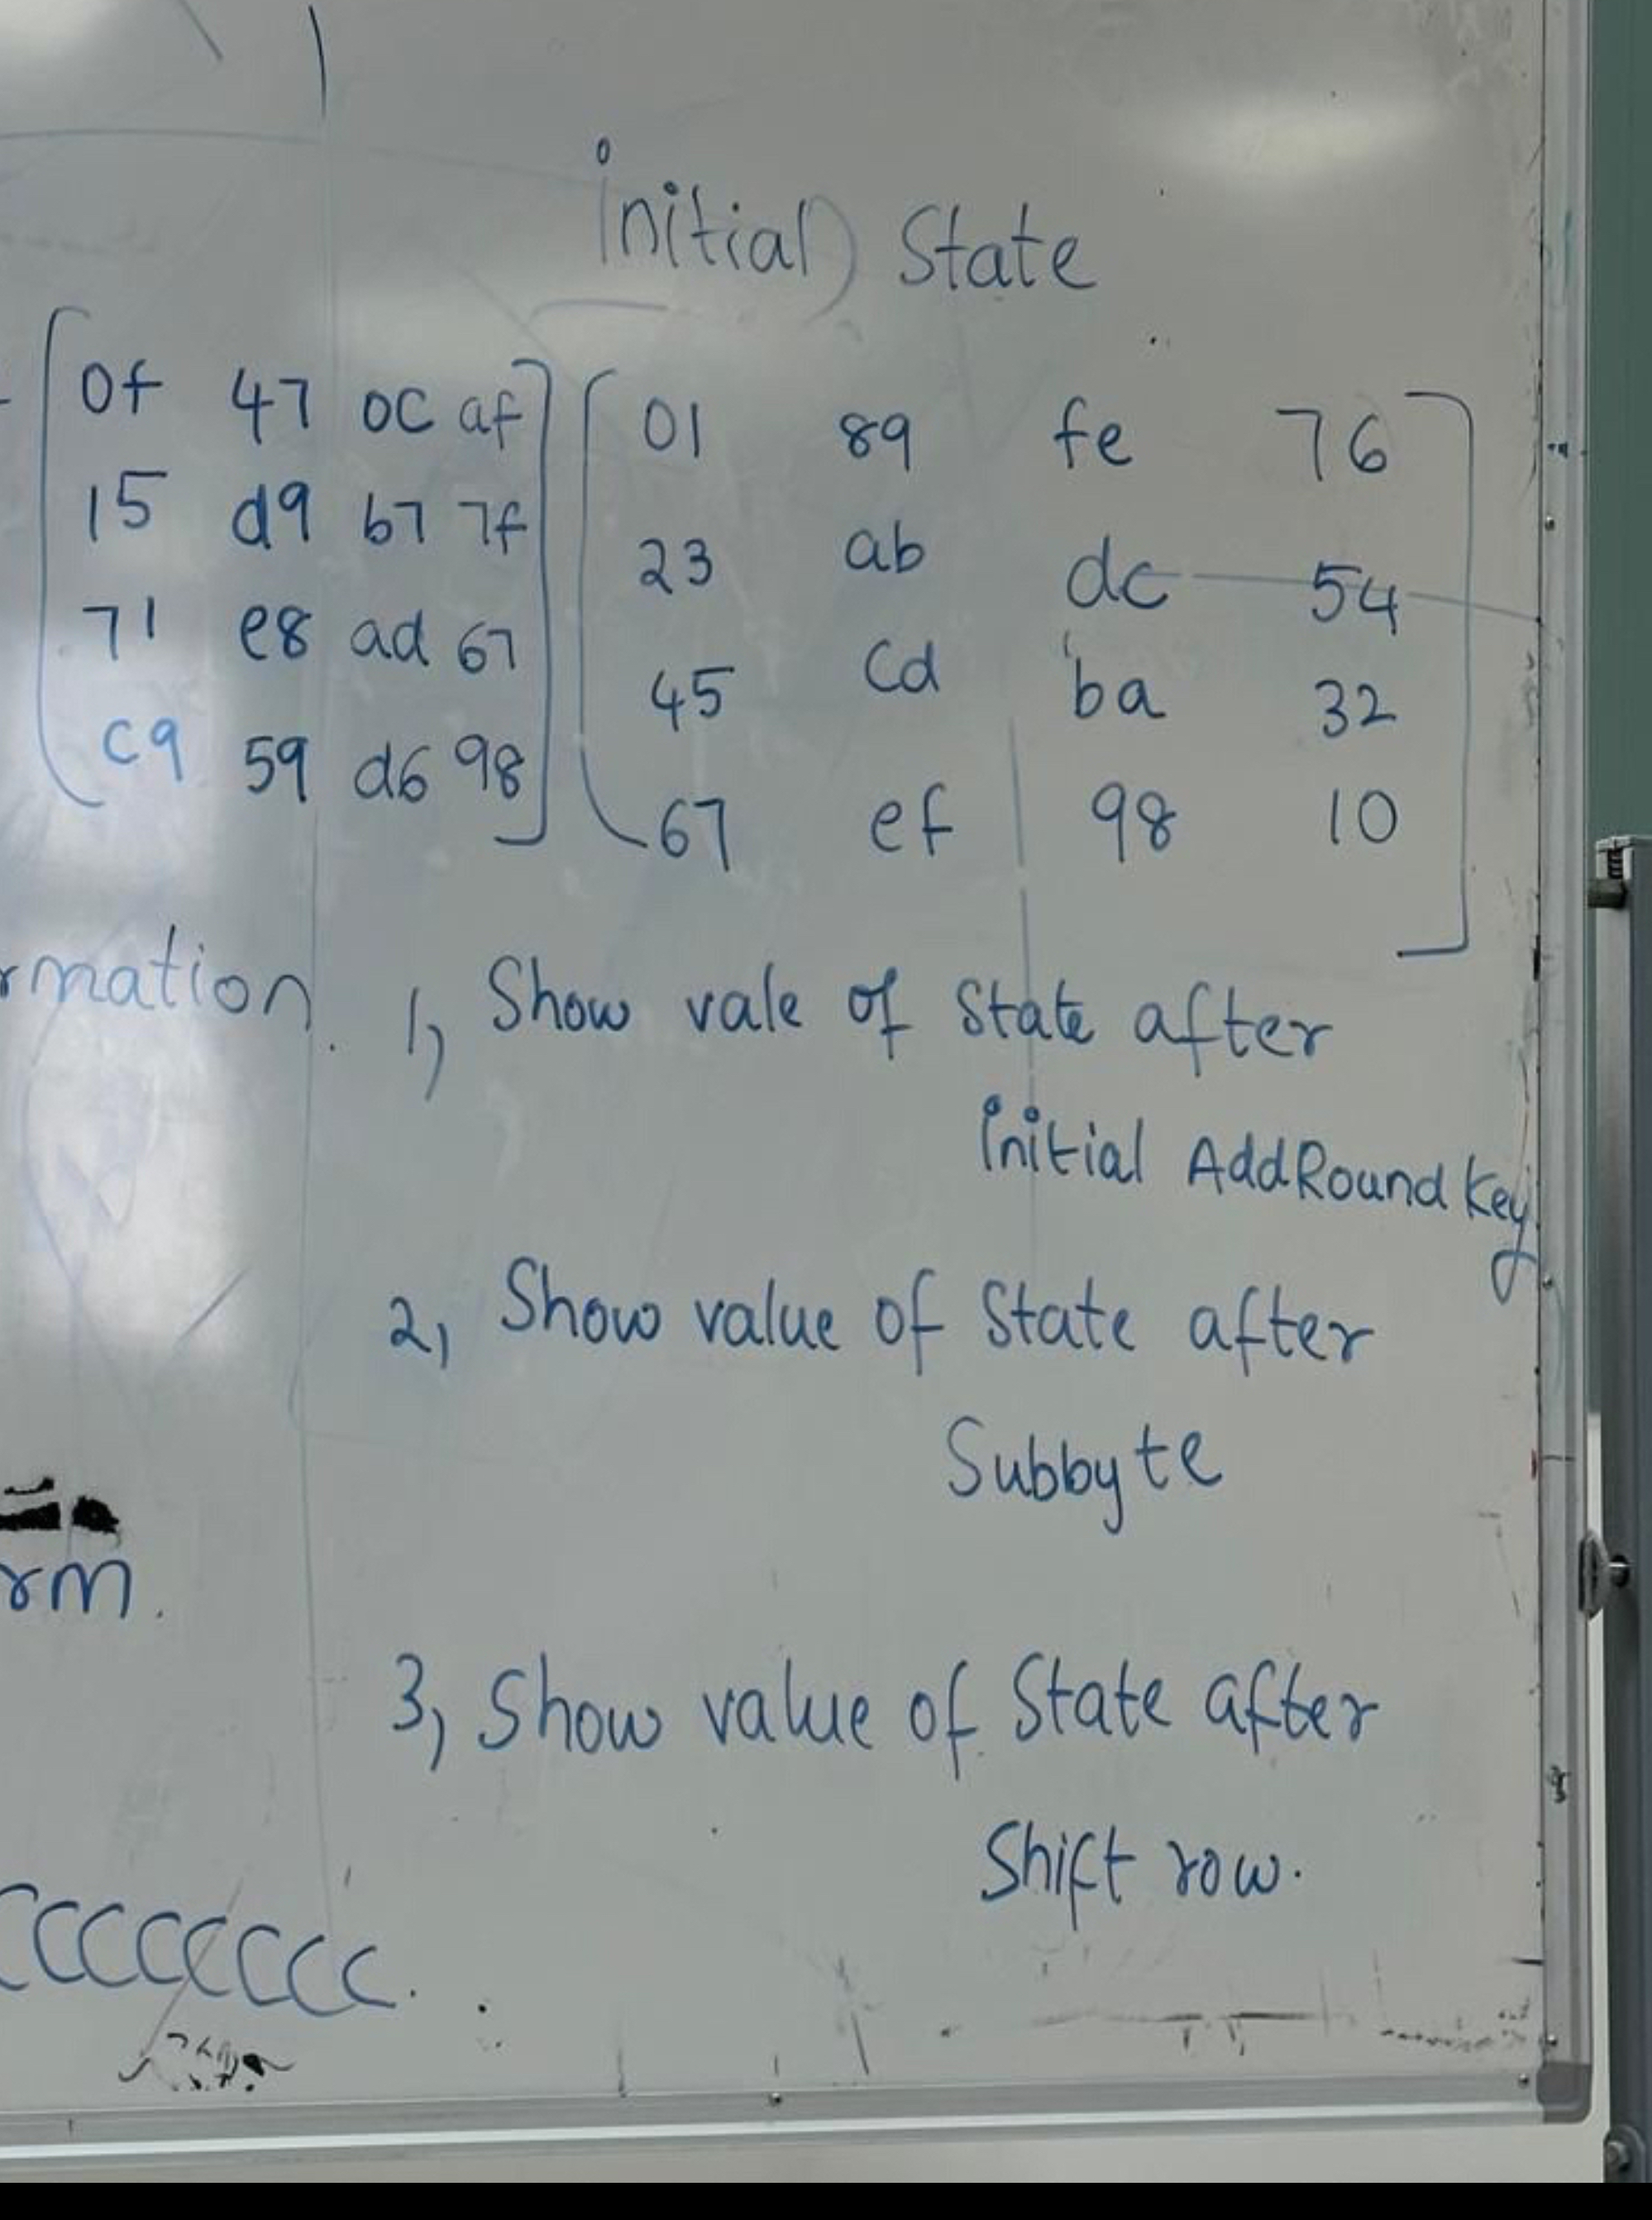 initial State
0f 47 0c af 01 89 fe 76
15 d9 b7 7f 23 ab dc 54
71 e8 ad 67 45 cd ba 32
c9 59 d6 98 67 ef 98 10
rmation. 1, Show vale of State after
initial AddRound Key
2, Show value of State after
Subbyte
rm.
3, Show value of State after
Shift row.
CCCCCCCCC.